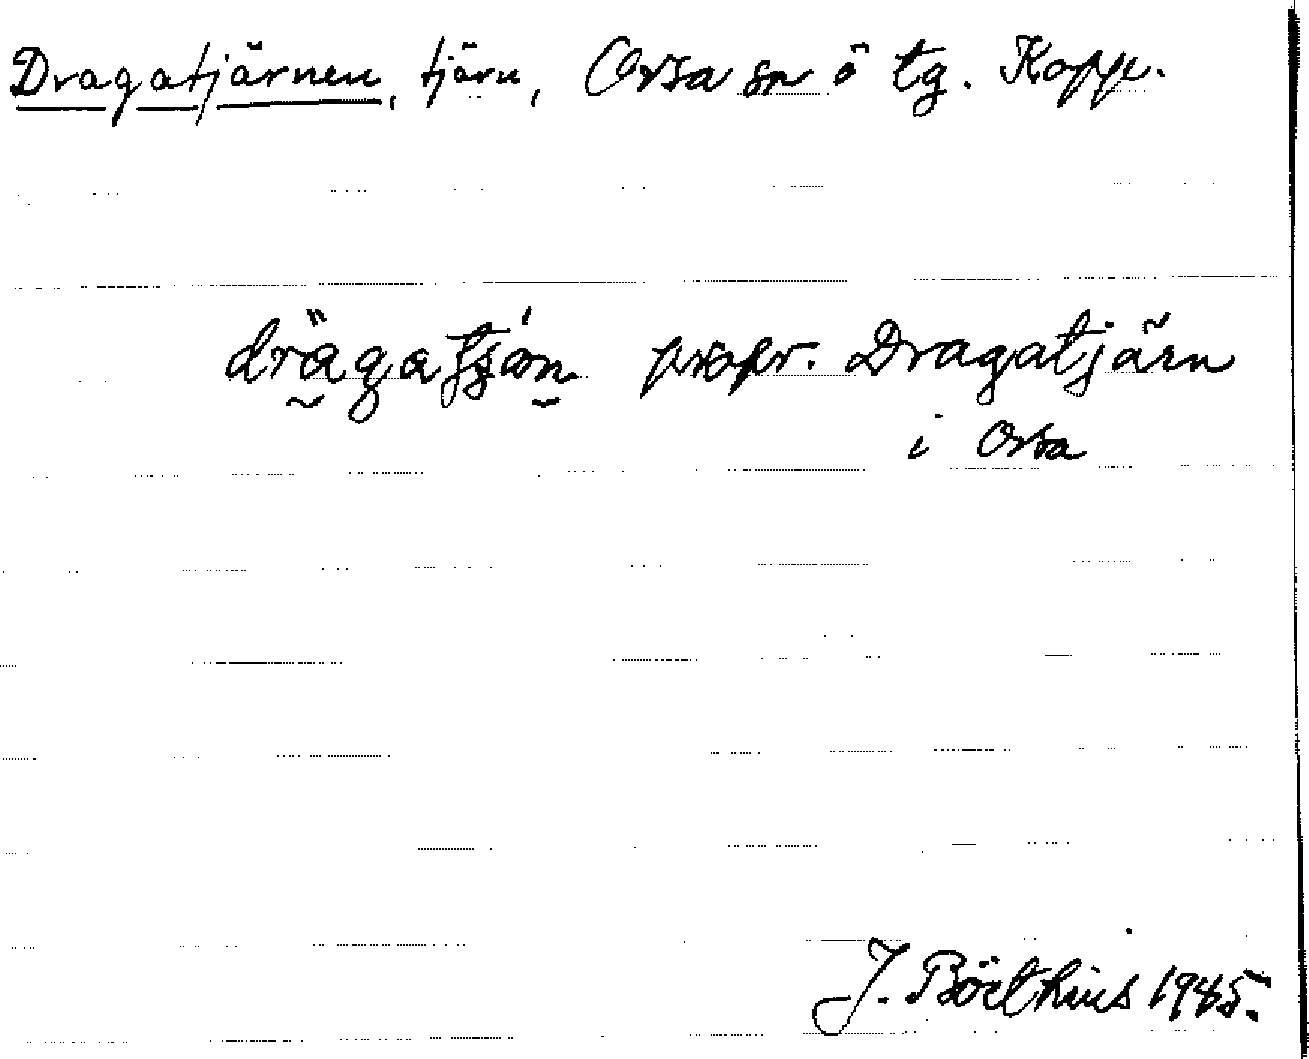 Dragatjärnen, tjärn, Orsa sn ö tg. Kopp.
propr. Dragatjärn
i Orsa
J. Boëthius 1945.